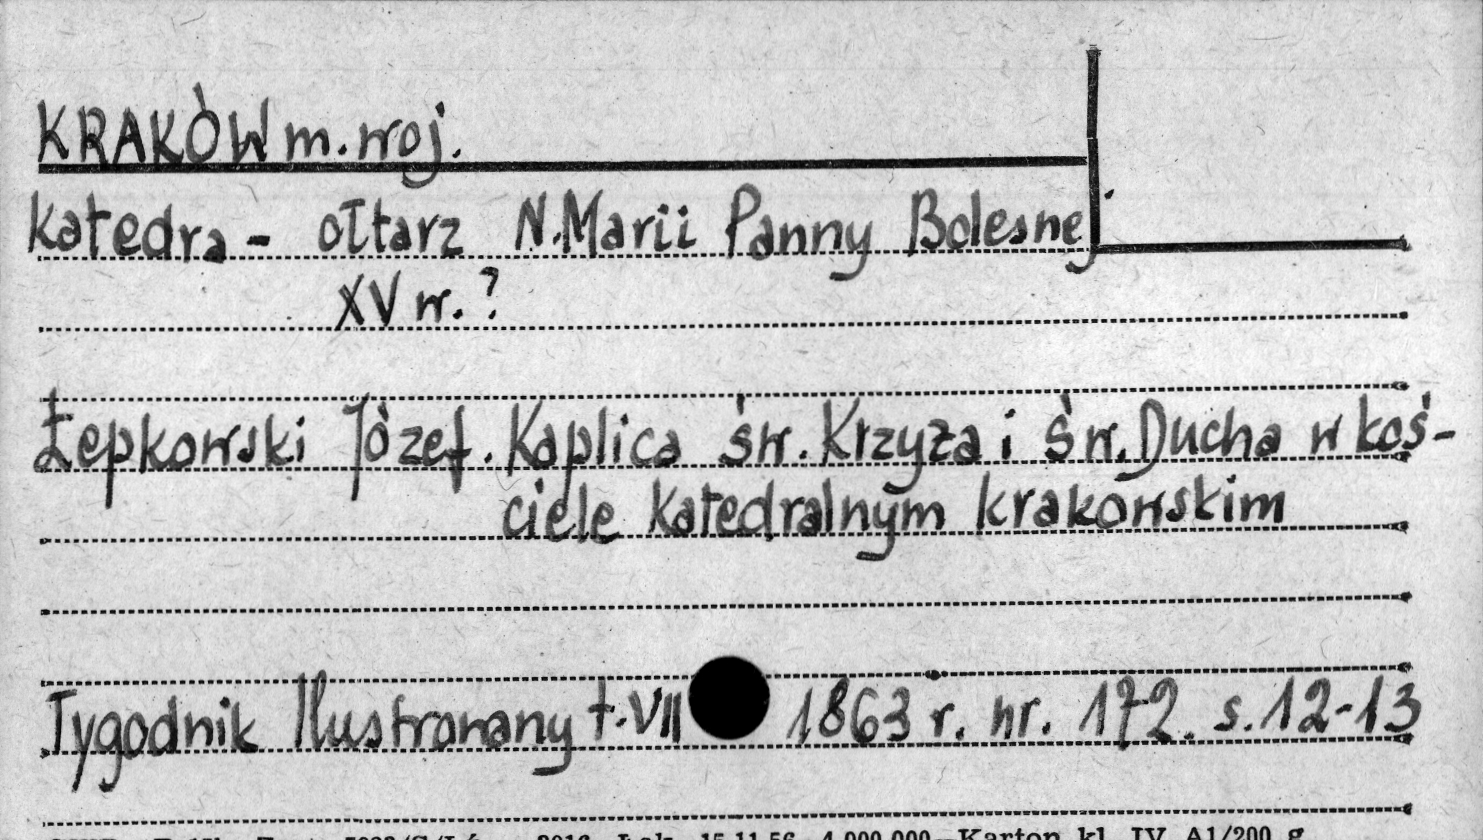 KRAKÓW m. woj.
Katedra - ołtarz N. Marii Panny Bolesnej
XV w. ?
Łepkowski Józef. Kaplica św. Krzyża i św. Ducha w koś-
ciele Katedralnym krakowskim
Tygodnik Ilustrowany t. VII 1863 r. nr. 172. s. 12-13
3016 15.11.56 4.000.000 - Karton kl. IV A1/200 g